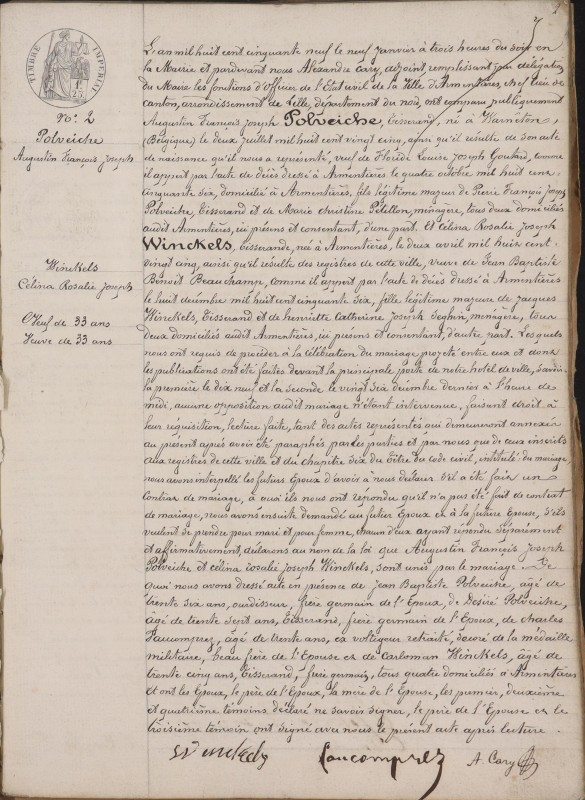 TIMBRE IMPERIAL
No. 2
Polveiche
Augustin François Joseph
Winckels
Célina Rosalie Joseph
Veuf de 33 ans
Veuve de 33 ans
L'an mil huit cent cinquante neuf le neuf Janvier à trois heures du soir en
la Mairie et pardevant nous Alexandre Cary, adjoint remplissant par délégation
du Maire les fonctions d'Officier de l'Etat civil de la Ville d'Armentières, chef lieu de
canton, arrondissement de Lille, département du nord, ont comparu publiquement
Augustin François Joseph Polveiche, Tisserand, né à Warneton,
(Belgique) le deux juillet mil huit cent vingt cinq, ainsi qu'il résulte de son acte
de naissance qu'il nous a représenté, veuf de Floride Louise Joseph Goutard, comme
il appert par l'acte de décès dressé à Armentières le quatre octobre mil huit cent
cinquante six, domicilié à Armentières, fils légitime majeur de Pierre François Joseph
Polveiche, Tisserand et de Marie Christine Pétillon, ménagère, tous deux domiciliés
audit Armentières, ici présens et consentant, d'une part. et Célina Rosalie Joseph
Winckels, Tisserande, née à Armentières, le deux avril mil huit cent
vingt cinq, ainsi qu'il résulte des registres de cette ville, veuve de Jean Baptiste
Benoit Beauchamp, comme il appert par l'acte de décès dressé à Armentières
le huit décembre mil huit cent cinquante six, fille légitime majeure de Jacques
Winckels, Tisserand et de henriette Catherine Joseph Seghin, ménagère, tous
deux domiciliés audit Armentières, ici présens et consentant, d'autre part. Lesquels
nous ont requis de procéder à la célébration du mariage projeté entre eux et dont
les publications ont été faites devant la principale porte de notre hôtel de ville, savoir:
la première le dix neuf et la seconde le vingt six décembre dernier à l'heure de
midi, aucune opposition audit mariage n'étant intervenue, faisant droit à
leur réquisition, lecture faite, tant des actes représentés qui demeureront annexés
au présent après avoir été paraphés par les parties et par nous que de ceux inscrits
aux registres de cette ville et du chapitre six du titre du code civil, intitulé du mariage,
nous avons interpellé les futurs Epoux d'avoir à nous déclarer s'il a été fait un
Contrat de mariage, à quoi ils nous ont répondu qu'il n'a pas été fait de contrat
de mariage, nous avons ensuite demandé au futur Epoux et à la future Epouse, s'ils
veulent se prendre pour mari et pour femme, chacun d'eux ayant répondu séparément
et affirmativement, déclarons au nom de la loi que Augustin François Joseph
Polveiche et Célina Rosalie Joseph Winckels, sont unis par le mariage. De
quoi nous avons dressé acte en présence de Jean Baptiste Polveiche, âgé de
trente six ans, ourdisseur, frère germain de l'Epoux, de Désiré Polveiche,
âgé de trente sept ans, Tisserand, frère germain de l'Epoux, de Charles
Faucomprez, âgé de trente ans, ex voltigeur retraité, décoré de la médaille
militaire, beau frère de l'Epouse et de Carloman Winckels, âgé de
trente cinq ans, Tisserand, frère germain, tous quatre domiciliés à Armentières
et ont les Epoux, le père de l'Epoux, la mère de l'Epouse, les premier, deuxième
et quatrième témoins déclaré ne savoir signer, le père de l'Epouse et le
troisième témoin ont signé avec nous le présent acte après lecture.
faucomprez
A Cary